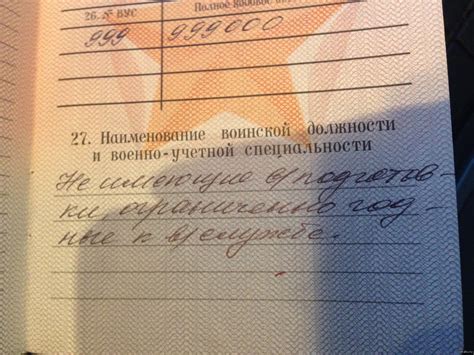 26. № ВУС
Полное кодовое
999
999000
27. Наименование воинской должности
и военно-учетной специальности
Не имеющие в/подготов-
ки, ограниченно год-
ные к в/службе.